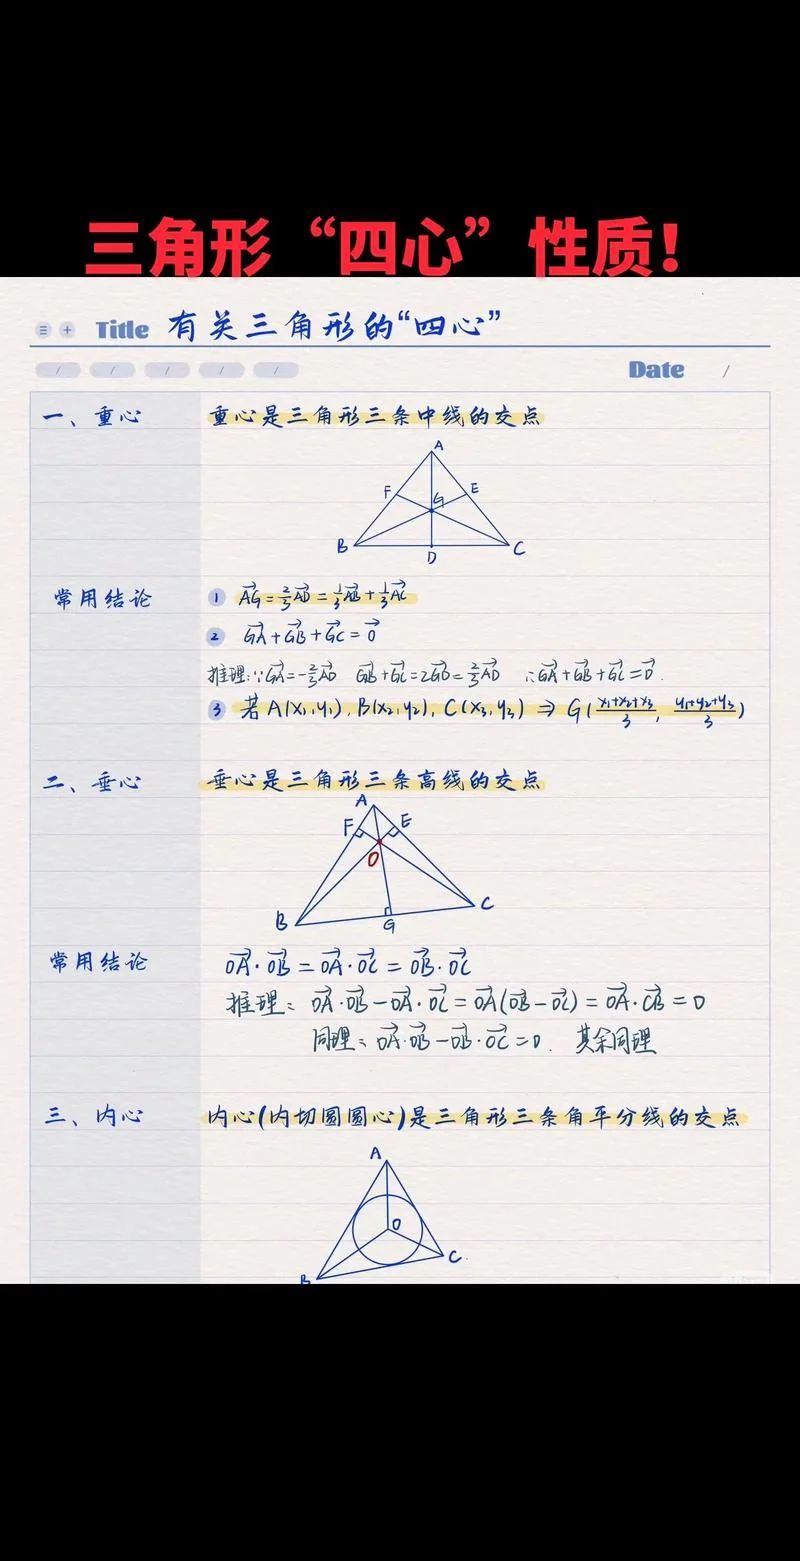 三角形“四心”性质！
Title 有关三角形的“四心”
Date /
一、重心 重心是三角形三条中线的交点
A
F E
G
B D C
常用结论 ① AG→=2/3AD→=1/3AB→+1/3AC→
② GA→+GB→+GC→=0→
推理:∵GA→=-2/3AD→ GB→+GC→=2GD→=2/3AD→ ∴GA→+GB→+GC→=0→.
③ 若A(x₁,y₁),B(x₂,y₂),C(x₃,y₃)⇒G((x₁+x₂+x₃)/3, (y₁+y₂+y₃)/3)
二、垂心 垂心是三角形三条高线的交点
A
F E
O
B G C
常用结论 OA→·OB→=OA→·OC→=OB→·OC→
推理: OA→·OB→-OA→·OC→=OA→(OB→-OC→)=OA→·CB→=0
同理: OA→·OB→-OB→·OC→=0. 其余同理
三、内心 内心(内切圆圆心)是三角形三条角平分线的交点
A
O
C
B